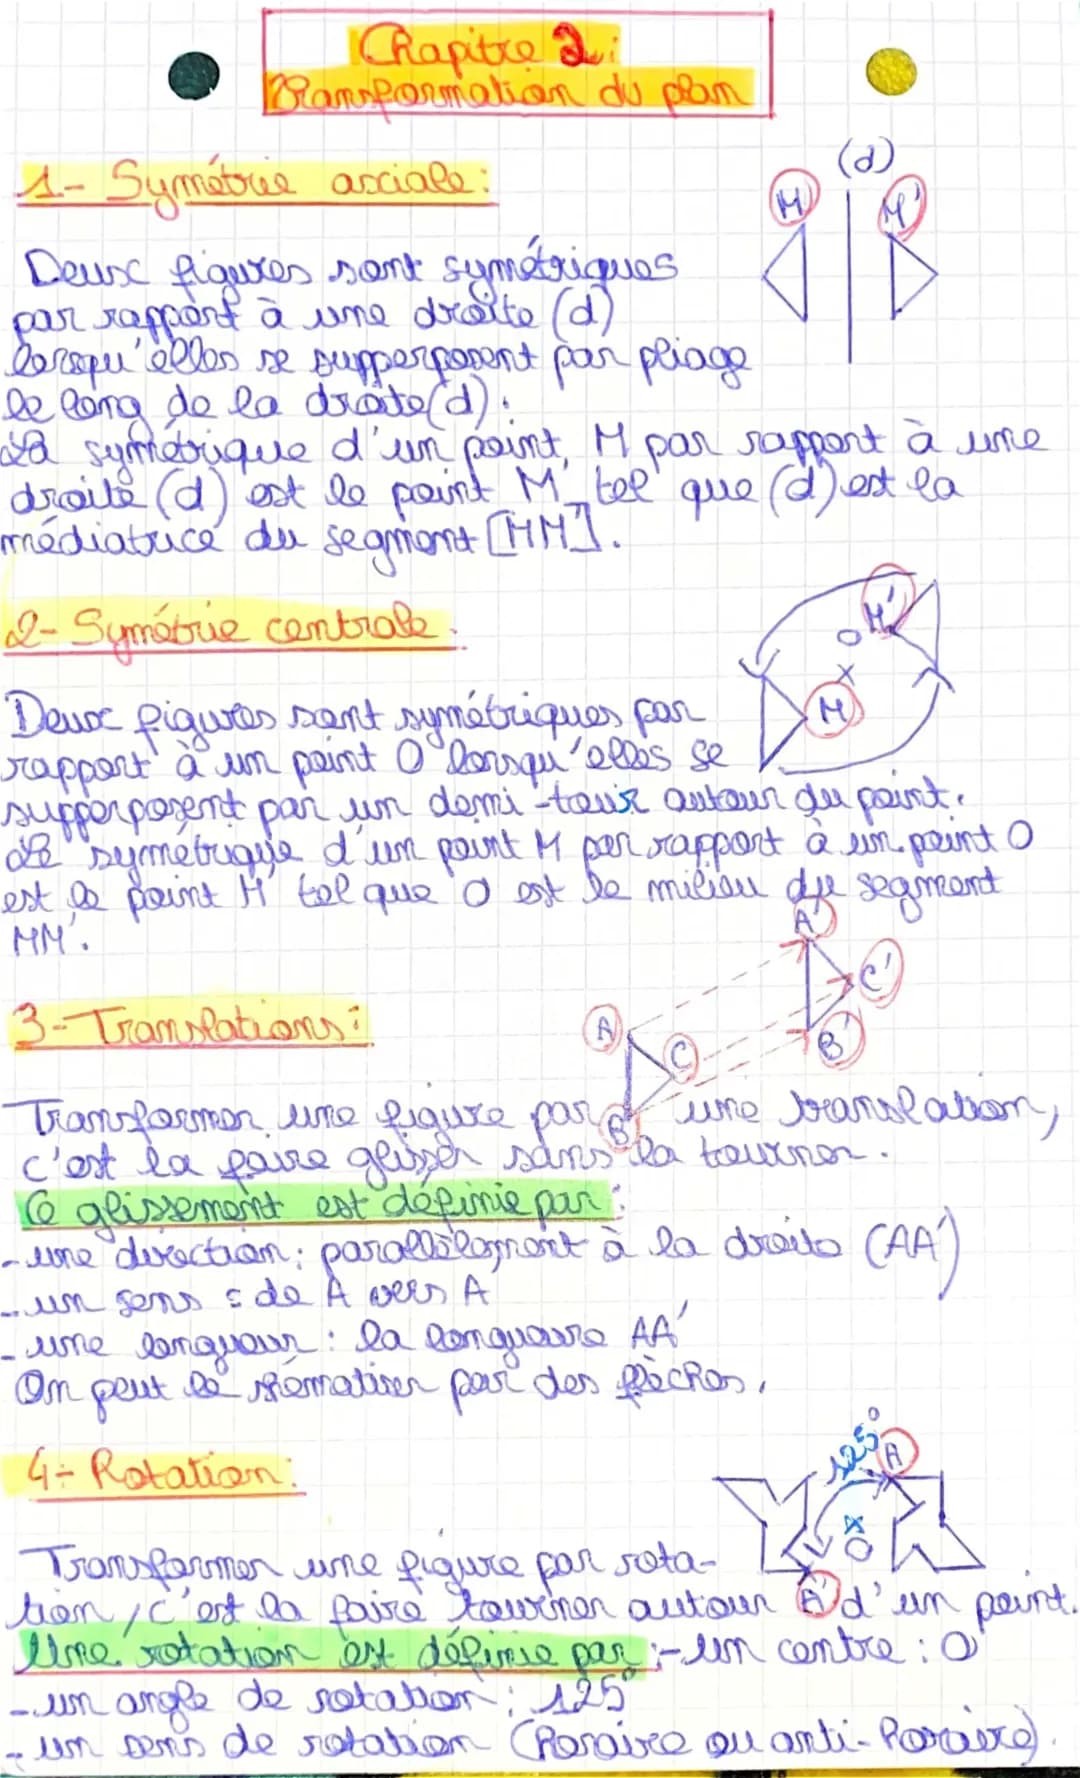 Chapitre 2 :
Transformation du plan
1- Symétrie axciale :
(d)
M
M'
Deux figures sont symétriques
par rapport à une droite (d)
lorsqu'elles se supperposent par pliage
le long de la droite (d).
La symétrique d'un point, M par rapport à une
droite (d) est le point M' tel que (d) est la
médiatrice du segment [MM'].
2- Symétrie centrale.
M'
O
M
Deux figures sont symétriques par
rapport à un point O lorsqu'elles se
supperposent par un demi-tour autour du point.
Le symétrique d'un point M par rapport à un point O
est le point M' tel que O est le milieu du segment
MM'.
3- Translations :
A
C
B
A'
C'
B'
Transformer une figure par une translation,
c'est la faire glisser sans la tourner.
Ce glissement est définie par :
- une direction : parallèlement à la droite (AA')
- un sens : de A vers A
- une longueur : la longueure AA'
On peut le shématiser par des flèches,
4- Rotation :
125°
A
O
A'
Transformer une figure par rota-
tion, c'est la faire tourner autour d'un point.
Une rotation est définie par :- un centre : O
- un angle de rotation : 125°
- un sens de rotation (horaire ou anti-horaire).